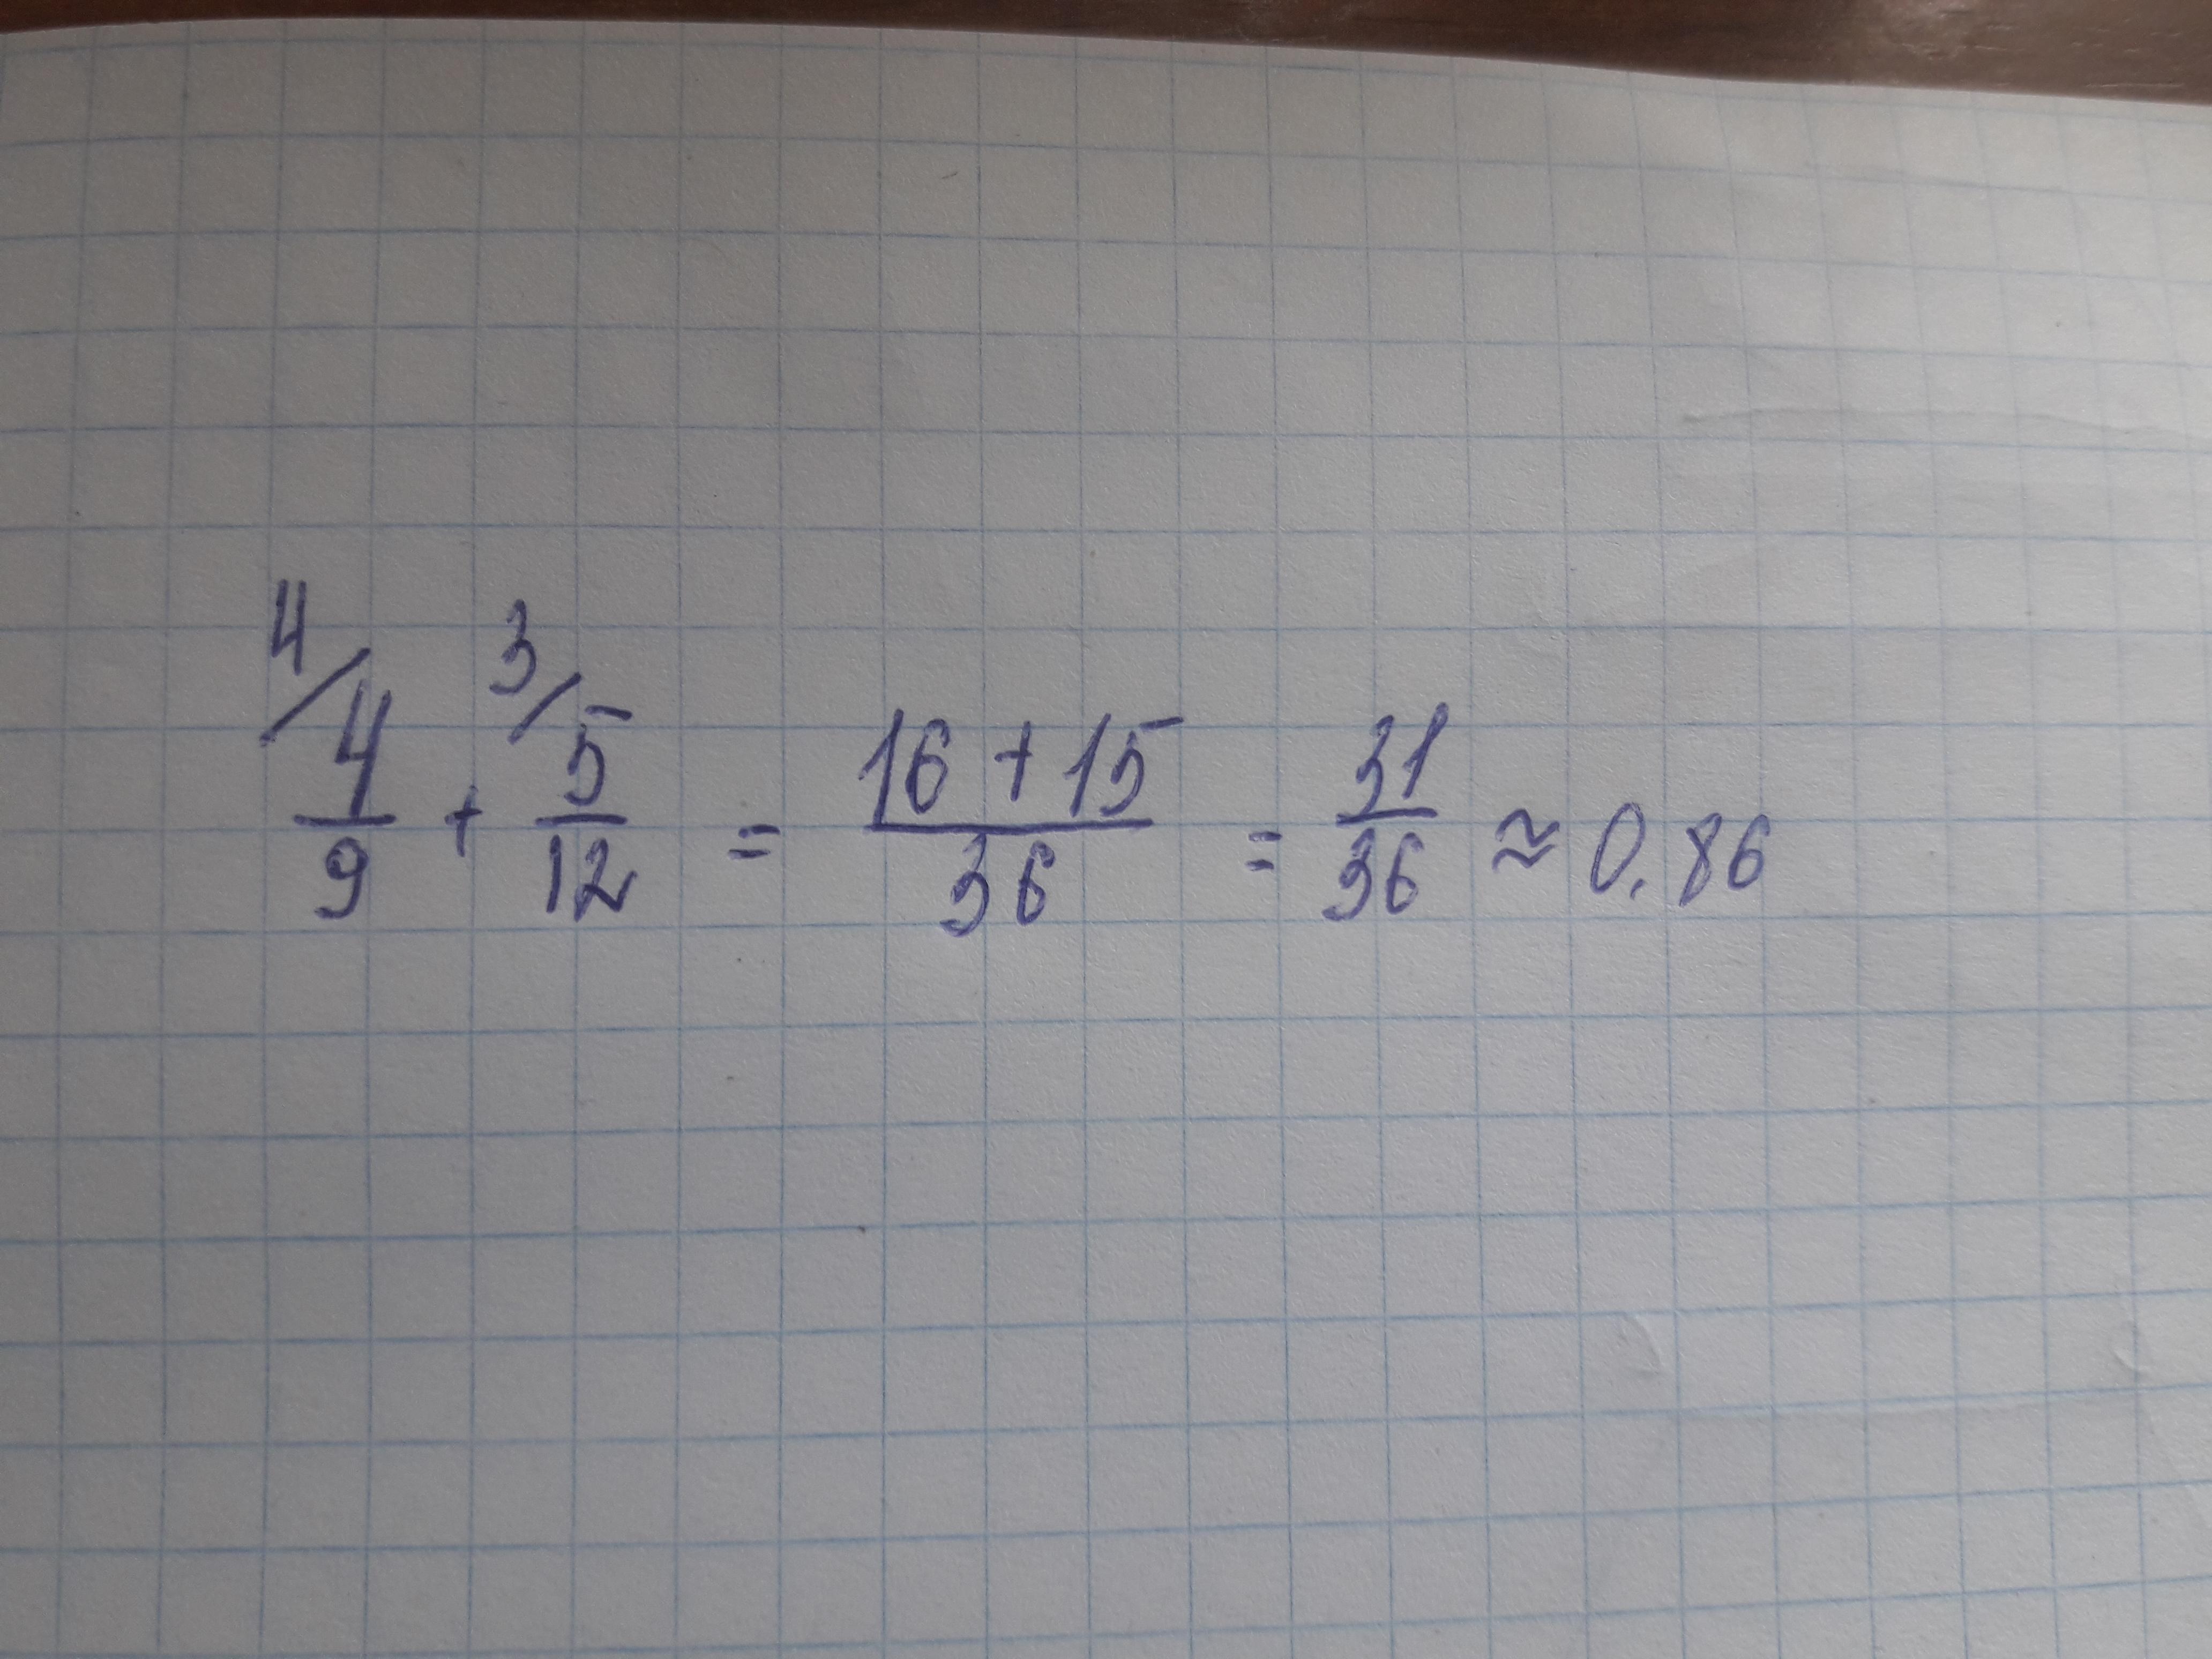 4/ 4/9 + 3/ 5/12 = (16 + 15)/36 = 31/36 ≈ 0.86